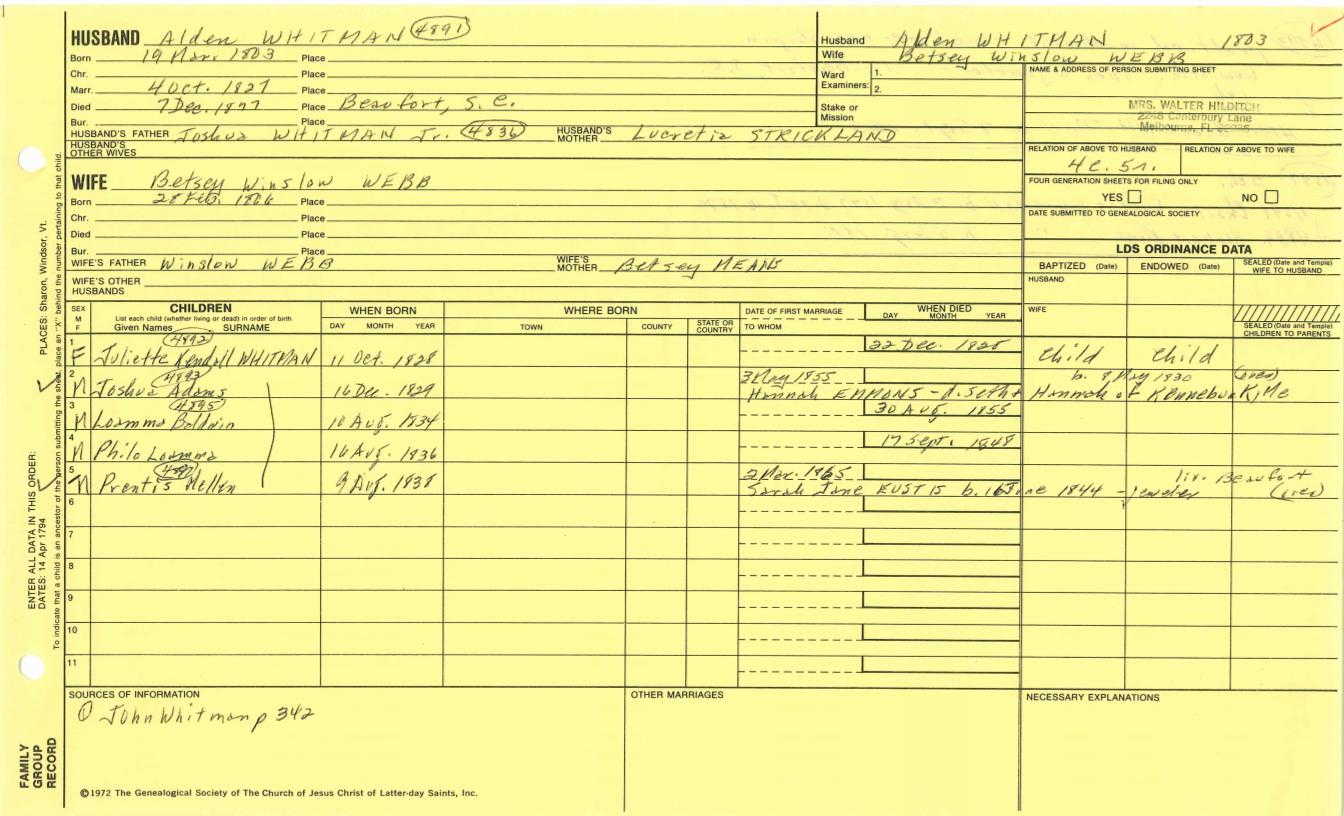 HUSBAND Alden WHITMAN 4891
Born 19 Mar. 1803 Place
Chr. Place
Marr. 4 Oct. 1827 Place
Died 7 Dec. 1877 Place Beaufort, S.C.
Bur. Place
HUSBAND'S FATHER Joshua WHITMAN Jr. 4836 HUSBAND'S MOTHER Lucretia STRICKLAND
HUSBAND'S OTHER WIVES
WIFE Betsey Winslow WEBB
Born 28 Feb. 1806 Place
Chr. Place
Died Place
Bur. Place
WIFE'S FATHER Winslow WEBB WIFE'S MOTHER Betsey MEANS
WIFE'S OTHER HUSBANDS
Husband Alden WHITMAN 1803
Wife Betsey Winslow WEBB
Ward Examiners: 1. 2.
Stake or Mission
NAME & ADDRESS OF PERSON SUBMITTING SHEET
MRS. WALTER HILDITCH
2248 Canterbury Lane
Melbourne, FL
RELATION OF ABOVE TO HUSBAND RELATION OF ABOVE TO WIFE
4c. 5r.
FOUR GENERATION SHEETS FOR FILING ONLY
YES NO
DATE SUBMITTED TO GENEALOGICAL SOCIETY
LDS ORDINANCE DATA
BAPTIZED (Date) ENDOWED (Date) SEALED (Date and Temple) WIFE TO HUSBAND
HUSBAND
WIFE
SEALED (Date and Temple) CHILDREN TO PARENTS
SEX M F CHILDREN WHEN BORN WHERE BORN DATE OF FIRST MARRIAGE WHEN DIED
List each child (whether living or dead) in order of birth
Given Names SURNAME DAY MONTH YEAR TOWN COUNTY STATE OR COUNTRY TO WHOM DAY MONTH YEAR
1 4892 22 Dec. 1828
F Juliette Kendall WHITMAN 11 Oct. 1828 child child
2 4893 3 May 1855 b. 8 May 1830 (over)
M Joshua Adams 16 Dec. 1829 Hannah EMMONS - d. Seth + Hannah of Kennebunk, Me
3 4895 30 Aug. 1855
M Loammo Baldwin 10 Aug. 1834
4 17 Sept. 1848
M Philo Loammo 16 Aug. 1836
5 4897 2 Mar. 1865 liv. Beaufort
M Prentis Mellen 9 Aug. 1838 Sarah Jane EUSTIS b. 16 June 1844 - jeweler (over)
6
7
8
9
10
11
SOURCES OF INFORMATION
① John Whitman p 342
OTHER MARRIAGES
NECESSARY EXPLANATIONS
©1972 The Genealogical Society of The Church of Jesus Christ of Latter-day Saints, Inc.
FAMILY GROUP RECORD
ENTER ALL DATA IN THIS ORDER:
DATES: 14 Apr 1794
PLACES: Sharon, Windsor, Vt.
To indicate that a child is an ancestor of the person submitting the sheet, place an "X" behind the number pertaining to that child.